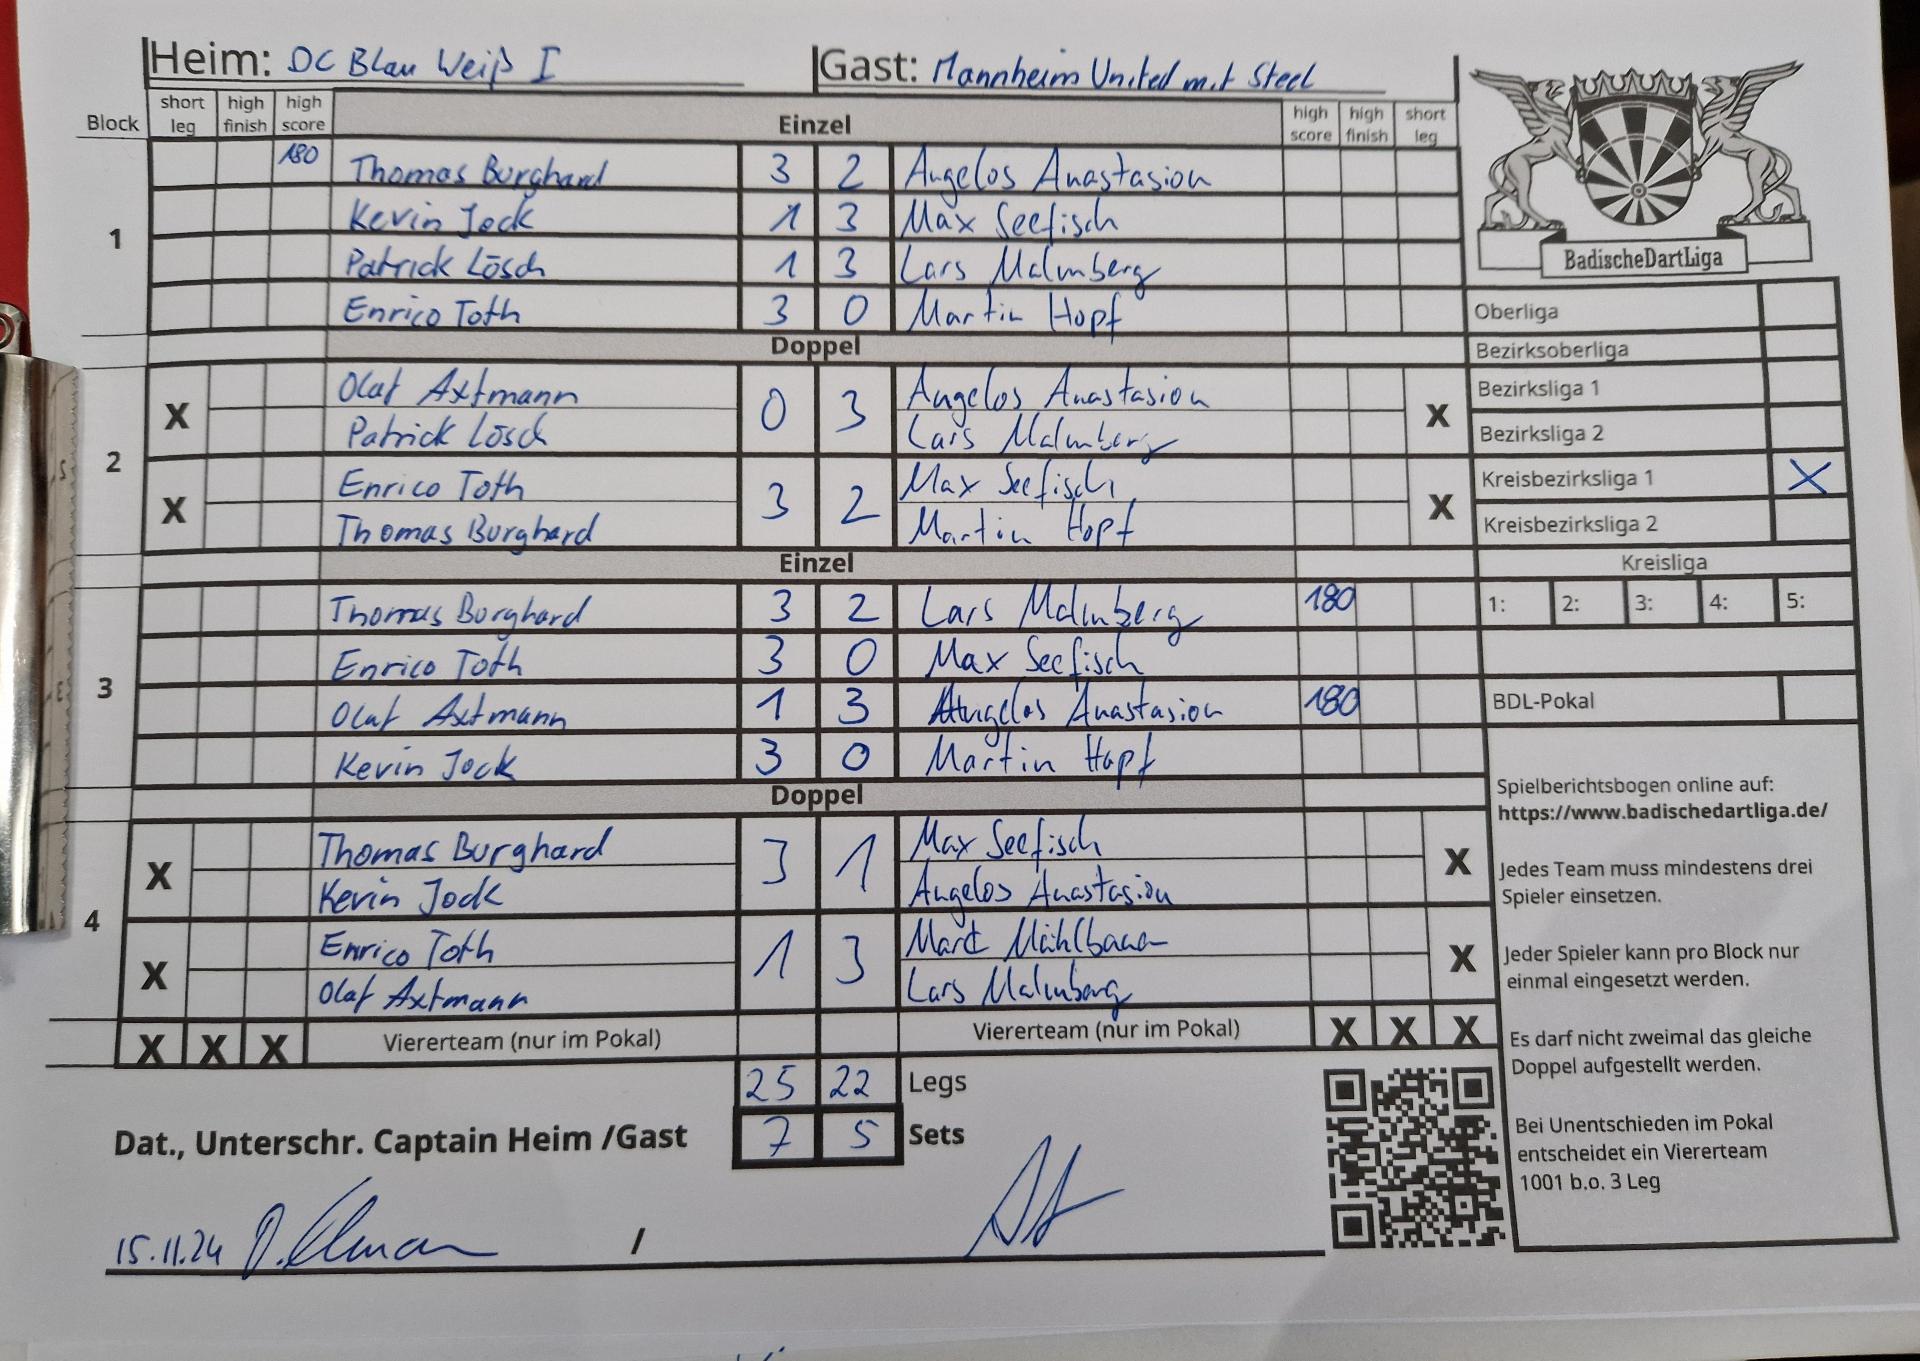 Heim: DC Blau Weiß I Gast: Mannheim United mit Steel
Block short leg high finish high score Einzel high score high finish short leg
1
180 Thomas Burghard 3 2 Angelos Anastasiou
Kevin Jock 1 3 Max Seefisch
Patrick Lösch 1 3 Lars Malmberg
Enrico Toth 3 0 Martin Hopf
Doppel
2
X Olaf Axtmann 0 3 Angelos Anastasiou X
Patrick Lösch Lars Malmberg
X Enrico Toth 3 2 Max Seefisch X
Thomas Burghard Martin Hopf
Einzel
3
Thomas Burghard 3 2 Lars Malmberg 180
Enrico Toth 3 0 Max Seefisch
Olaf Axtmann 1 3 Angelos Anastasiou 180
Kevin Jock 3 0 Martin Hopf
Doppel
4
X Thomas Burghard 3 1 Max Seefisch X
Kevin Jock Angelos Anastasiou
X Enrico Toth 1 3 Lars Malmberg X
Olaf Axtmann
X X X Viererteam (nur im Pokal) Viererteam (nur im Pokal) X X X
25 22 Legs
7 5 Sets
Dat., Unterschr. Captain Heim /Gast
15.11.24 /
BadischeDartLiga
Oberliga
Bezirksoberliga
Bezirksliga 1
Bezirksliga 2
Kreisbezirksliga 1 X
Kreisbezirksliga 2
Kreisliga
1: 2: 3: 4: 5:
BDL-Pokal
Spielberichtsbogen online auf:
https://www.badischedartliga.de/
Jedes Team muss mindestens drei
Spieler einsetzen.
Jeder Spieler kann pro Block nur
einmal eingesetzt werden.
Es darf nicht zweimal das gleiche
Doppel aufgestellt werden.
Bei Unentschieden im Pokal
entscheidet ein Viererteam
1001 b.o. 3 Leg